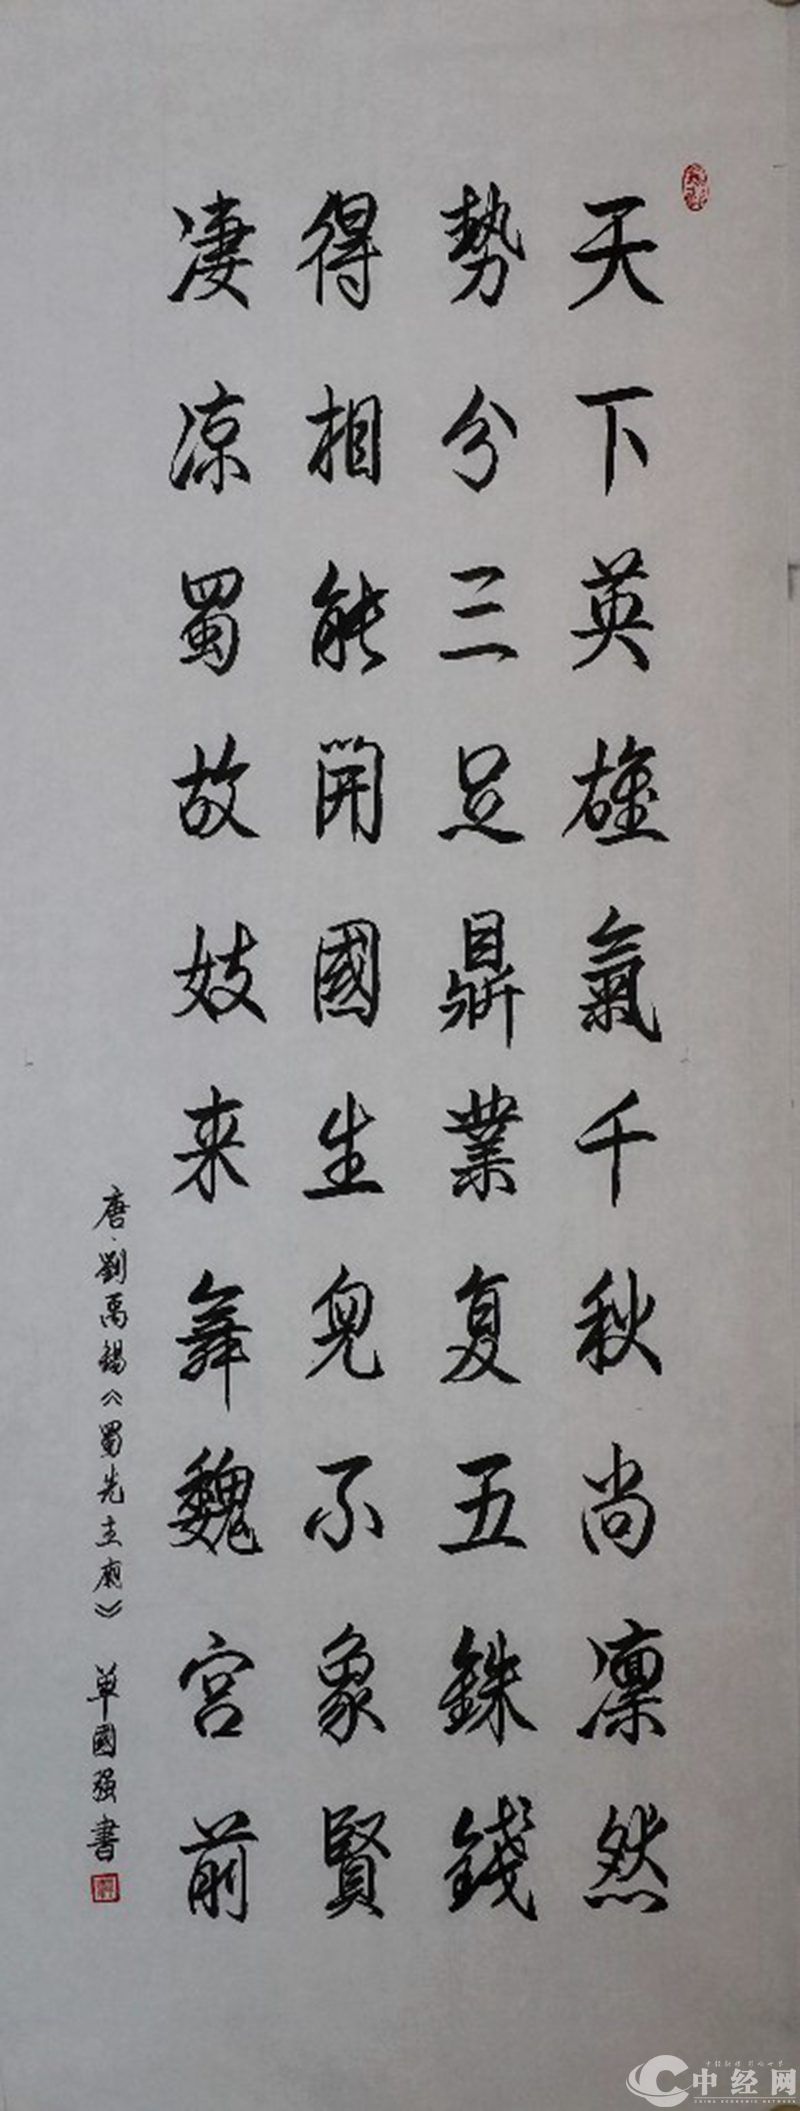 天下英雄氣千秋尚凛然
勢分三足鼎業复五銖錢
得相能開國生兒不象賢
凄凉蜀故妓来舞魏宫前
唐·劉禹錫《蜀先主廟》 單國强書
中经网
CHINA ECONOMIC NETWORK